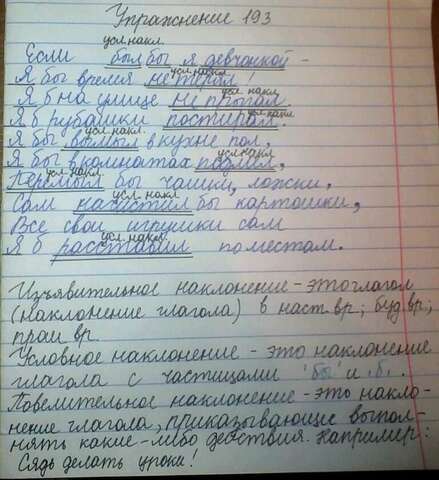 Упражнение 193
усл.накл.
Если был бы я девчонкой -
усл.накл.
Я бы время не терял!
усл.накл.
Я б на улице не прыгал.
усл.накл.
Я б рубашки постирал.
усл.накл.
Я бы вымыл в кухне пол,
усл.накл.
Я бы в комнатах подмёл,
усл.накл.
Перемыл бы чашки, ложки,
усл.накл.
Сам начистил бы картошки,
Все свои игрушки сам
усл.накл.
Я б расставил по местам.
Изъявительное наклонение - это глагол
(наклонение глагола) в наст.вр; буд.вр;
прош вр.
Условное наклонение - это наклонение
глагола с частицами "бы" и б.
Повелительное наклонение - это накло-
нение глагола, приказывающие выпол-
нять какие-либо действия. Например:
Сядь делать уроки!